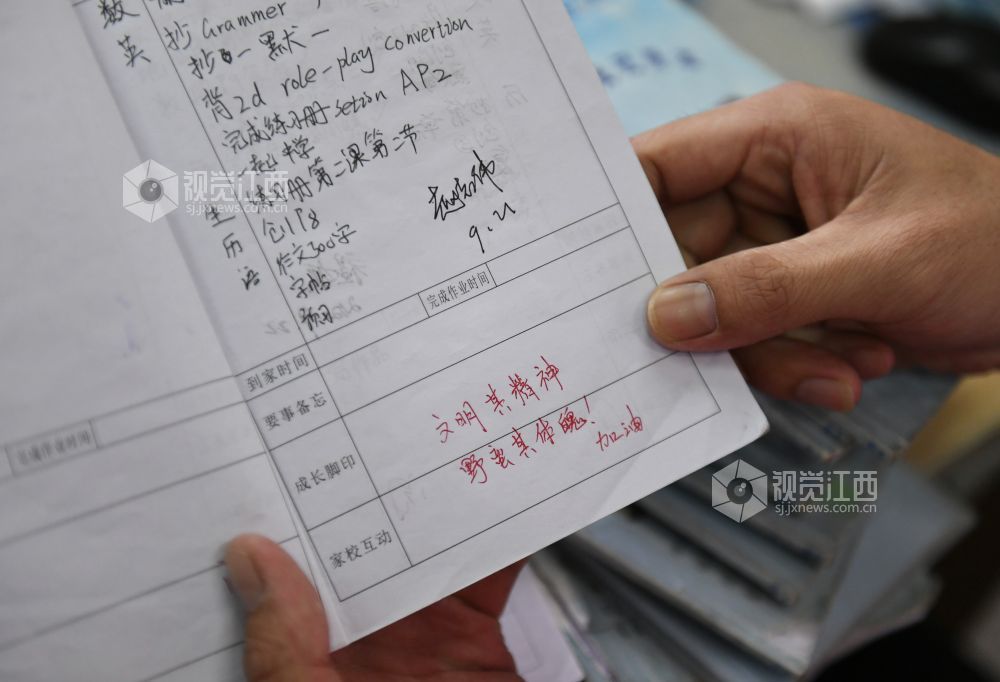 数
英
抄Grammer
抄0一默一
背2d role-play convertion
完成练习册setion AP2
一起中学
生
练习册第二课第二节
历
创118
语
作文300字
字帖
9.21
完成作业时间
到家时间
要事备忘
成长脚印
文明其精神
野蛮其体魄！
加油
家校互动
完成作业时间
视觉江西
sj.jxnews.com.cn
视觉江西
sj.jxnews.com.cn